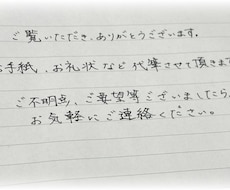 ご覧いただき、ありがとうございます。
お手紙、お礼状など代筆させて頂きます
ご不明点、ご要望等ございましたら、
お気軽にご連絡ください。